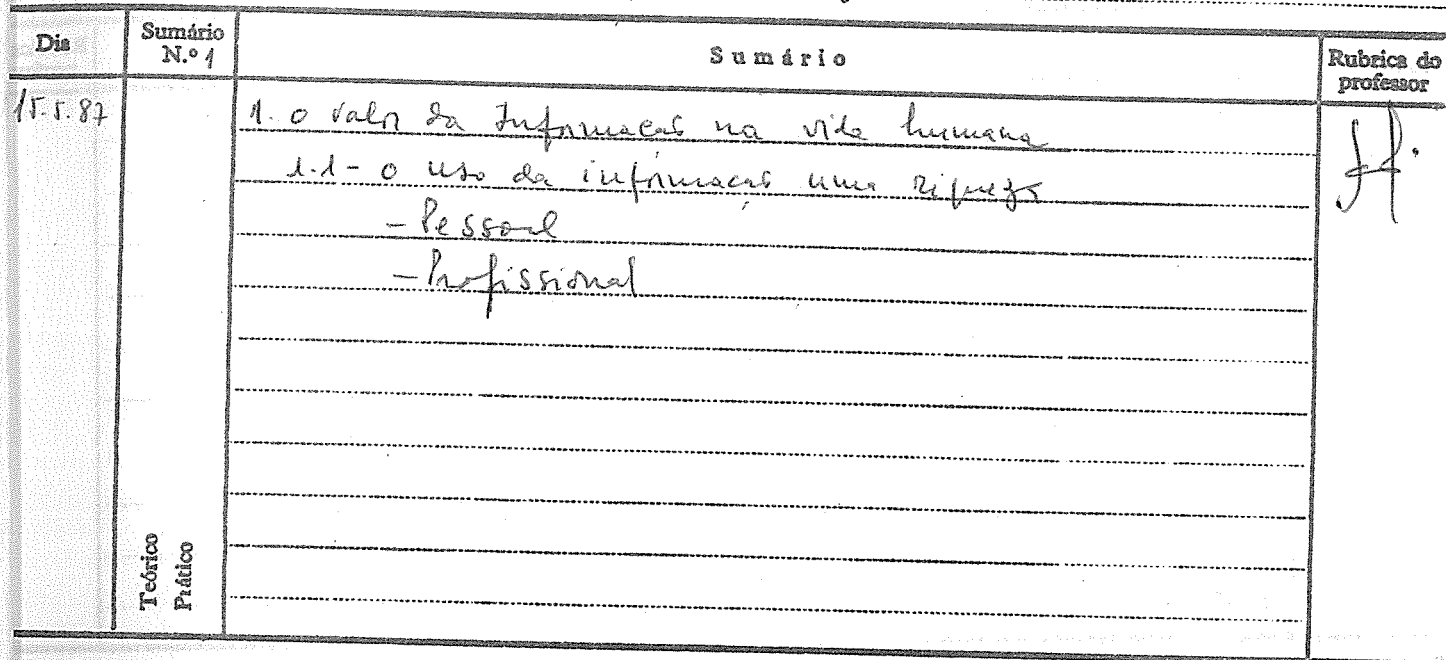 Dia
Sumário N.º 1
Sumário
Rubrica do professor
15.5.87
1. o valor da Informação na vida humana
1.1- o uso da informação uma riqueza
- Pessoal
- Profissional
Teórico
Prático